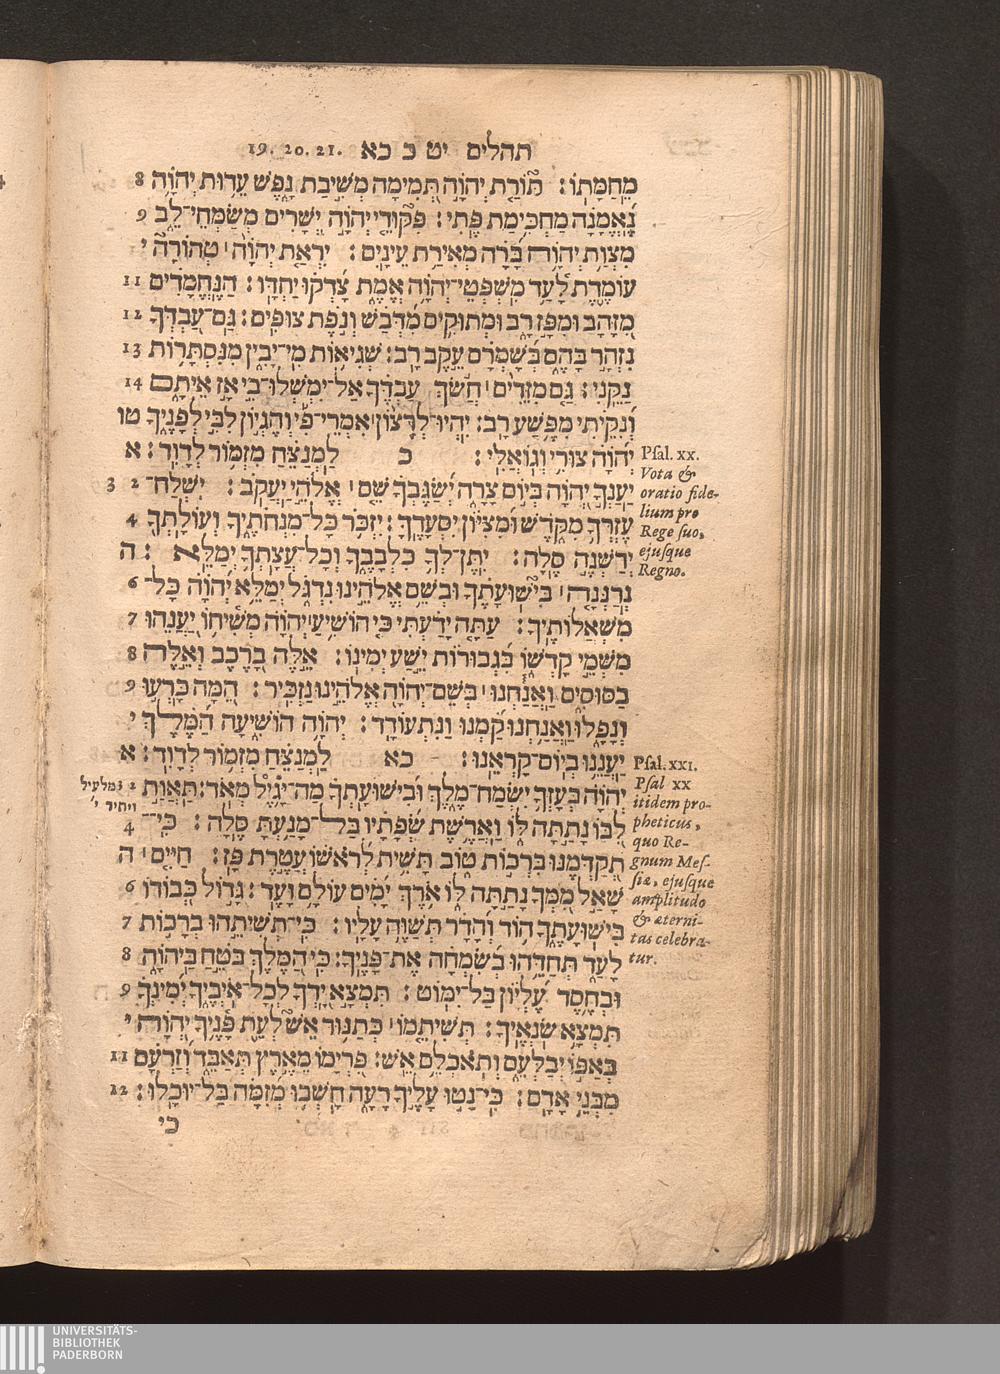 תהלים יט כ כא 19. 20. 21.
מֵחַמָּתוֹ׃ תּוֹרַת יְהוָֹה תְּמִימָה מְשִׁיבַת נָפֶשׁ עֵדוּת יְהוָֹה 8
נֶאֱמָנָה מַחְכִּימַת פֶּתִי׃ פִּקּוּדֵי יְהוָֹה יְשָׁרִים מְשַׂמְּחֵי־לֵב 9
מִצְוַת יְהוָֹה בָּרָה מְאִירַת עֵינָיִם׃ יִרְאַת יְהוָֹה ׀ טְהוֹרָה י
עוֹמֶדֶת לָעַד מִשְׁפְּטֵי־יְהוָֹה אֱמֶת צָדְקוּ יַחְדָּו׃ הַנֶּחֱמָדִים 11
מִזָּהָב וּמִפַּז רָב וּמְתוּקִים מִדְּבַשׁ וְנֹפֶת צוּפִים׃ גַּם־עַבְדְּךָ 12
נִזְהָר בָּהֶם בְּשָׁמְרָם עֵקֶב רָב׃ שְׁגִיאוֹת מִי־יָבִין מִנִּסְתָּרוֹת 13
נַקֵּנִי׃ גַּם מִזֵּדִים ׀ חֲשֹׂךְ עַבְדֶּךָ אַל־יִמְשְׁלוּ־בִי אָז אֵיתָם 14
וְנִקֵּיתִי מִפֶּשַׁע רָב׃ יִהְיוּ לְרָצוֹן ׀ אִמְרֵי־פִי וְהֶגְיוֹן לִבִּי לְפָנֶיךָ טו
יְהוָֹה צוּרִי וְגוֹאֲלִי׃ כ לַמְנַצֵּחַ מִזְמוֹר לְדָוִד׃ א
יַעַנְךָ יְהוָֹה בְּיוֹם צָרָה יְשַׂגֶּבְךָ שֵׁם ׀ אֱלֹהֵי יַעֲקֹב׃ יִשְׁלַח־ 2 3
עֶזְרְךָ מִקֹּדֶשׁ וּמִצִּיּוֹן יִסְעָדֶךָּ׃ יִזְכֹּר כָּל־מִנְחֹתֶיךָ וְעוֹלָתְךָ 4
יְדַשְּׁנֶה סֶלָה׃ יִתֶּן־לְךָ כִלְבָבֶךָ וְכָל־עֲצָתְךָ יְמַלֵּא׃ ה
נְרַנְּנָה ׀ בִּישׁוּעָתֶךָ וּבְשֵׁם אֱלֹהֵינוּ נִדְגֹּל יְמַלֵּא יְהוָֹה כָּל־ 6
מִשְׁאֲלוֹתֶיךָ׃ עַתָּה יָדַעְתִּי כִּי הוֹשִׁיעַ ׀ יְהוָֹה מְשִׁיחוֹ יַעֲנֵהוּ 7
מִשְּׁמֵי קָדְשׁוֹ בִּגְבוּרוֹת יֵשַׁע יְמִינוֹ׃ אֵלֶּה בָרֶכֶב וְאֵלֶּה 8
בַסּוּסִים וַאֲנַחְנוּ ׀ בְּשֵׁם־יְהוָֹה אֱלֹהֵינוּ נַזְכִּיר׃ הֵמָּה כָּרְעוּ 9
וְנָפָלוּ וַאֲנַחְנוּ קַּמְנוּ וַנִּתְעוֹדָד׃ יְהוָֹה הוֹשִׁיעָה הַמֶּלֶךְ י
יַעֲנֵנוּ בְיוֹם־קָרְאֵנוּ׃ כא לַמְנַצֵּחַ מִזְמוֹר לְדָוִד׃ א
יְהוָֹה בְּעָזְּךָ יִשְׂמַח־מֶלֶךְ וּבִישׁוּעָתְךָ מַה־יָּגֶיל מְאֹד׃ תַּאֲוַת 2 3
לִבּוֹ נָתַתָּה לּוֹ וַאֲרֶשֶׁת שְׂפָתָיו בַּל־מָנַעְתָּ סֶּלָה׃ כִּי־ 4
תְקַדְּמֶנּוּ בִּרְכוֹת טוֹב תָּשִׁית לְרֹאשׁוֹ עֲטֶרֶת פָּז׃ חַיִּים ׀ ה
שָׁאַל מִמְּךָ נָתַתָּה לּוֹ אֹרֶךְ יָמִים עוֹלָם וָעֶד׃ גָּדוֹל כְּבוֹדוֹ 6
בִּישׁוּעָתֶךָ הוֹד וְהָדָר תְּשַׁוֶּה עָלָיו׃ כִּי־תְשִׁיתֵהוּ בְרָכוֹת 7
לָעַד תְּחַדֵּהוּ בְשִׂמְחָה אֶת־פָּנֶיךָ׃ כִּי־הַמֶּלֶךְ בֹּטֵחַ בַּיהוָֹה 8
וּבְחֶסֶד עֶלְיוֹן בַּל־יִמּוֹט׃ תִּמְצָא יָדְךָ לְכָל־אֹיְבֶיךָ יְמִינְךָ 9
תִּמְצָא שֹׂנְאֶיךָ׃ תְּשִׁיתֵמוֹ ׀ כְּתַנּוּר אֵשׁ לְעֵת פָּנֶיךָ יְהוָֹה י
בְּאַפּוֹ יְבַלְּעֵם וְתֹאכְלֵם אֵשׁ׃ פִּרְיָמוֹ מֵאֶרֶץ תְּאַבֵּד וְזַרְעָם 11
מִבְּנֵי אָדָם׃ כִּי־נָטוּ עָלֶיךָ רָעָה חָשְׁבוּ מְזִמָּה בַּל־יוּכָלוּ׃ 12
כי
Psal. xx.
Vota &
oratio fide-
lium pro
Rege suo,
ejusque
Regno.
Psal. xxi.
Psal xx
itidem pro-
pheticus,
quo Re-
gnum Mes-
siæ, ejusque
amplitudo
& æterni-
tas celebra-
tur.
מלעיל
ויתיר י'
UNIVERSITÄTS-
BIBLIOTHEK
PADERBORN